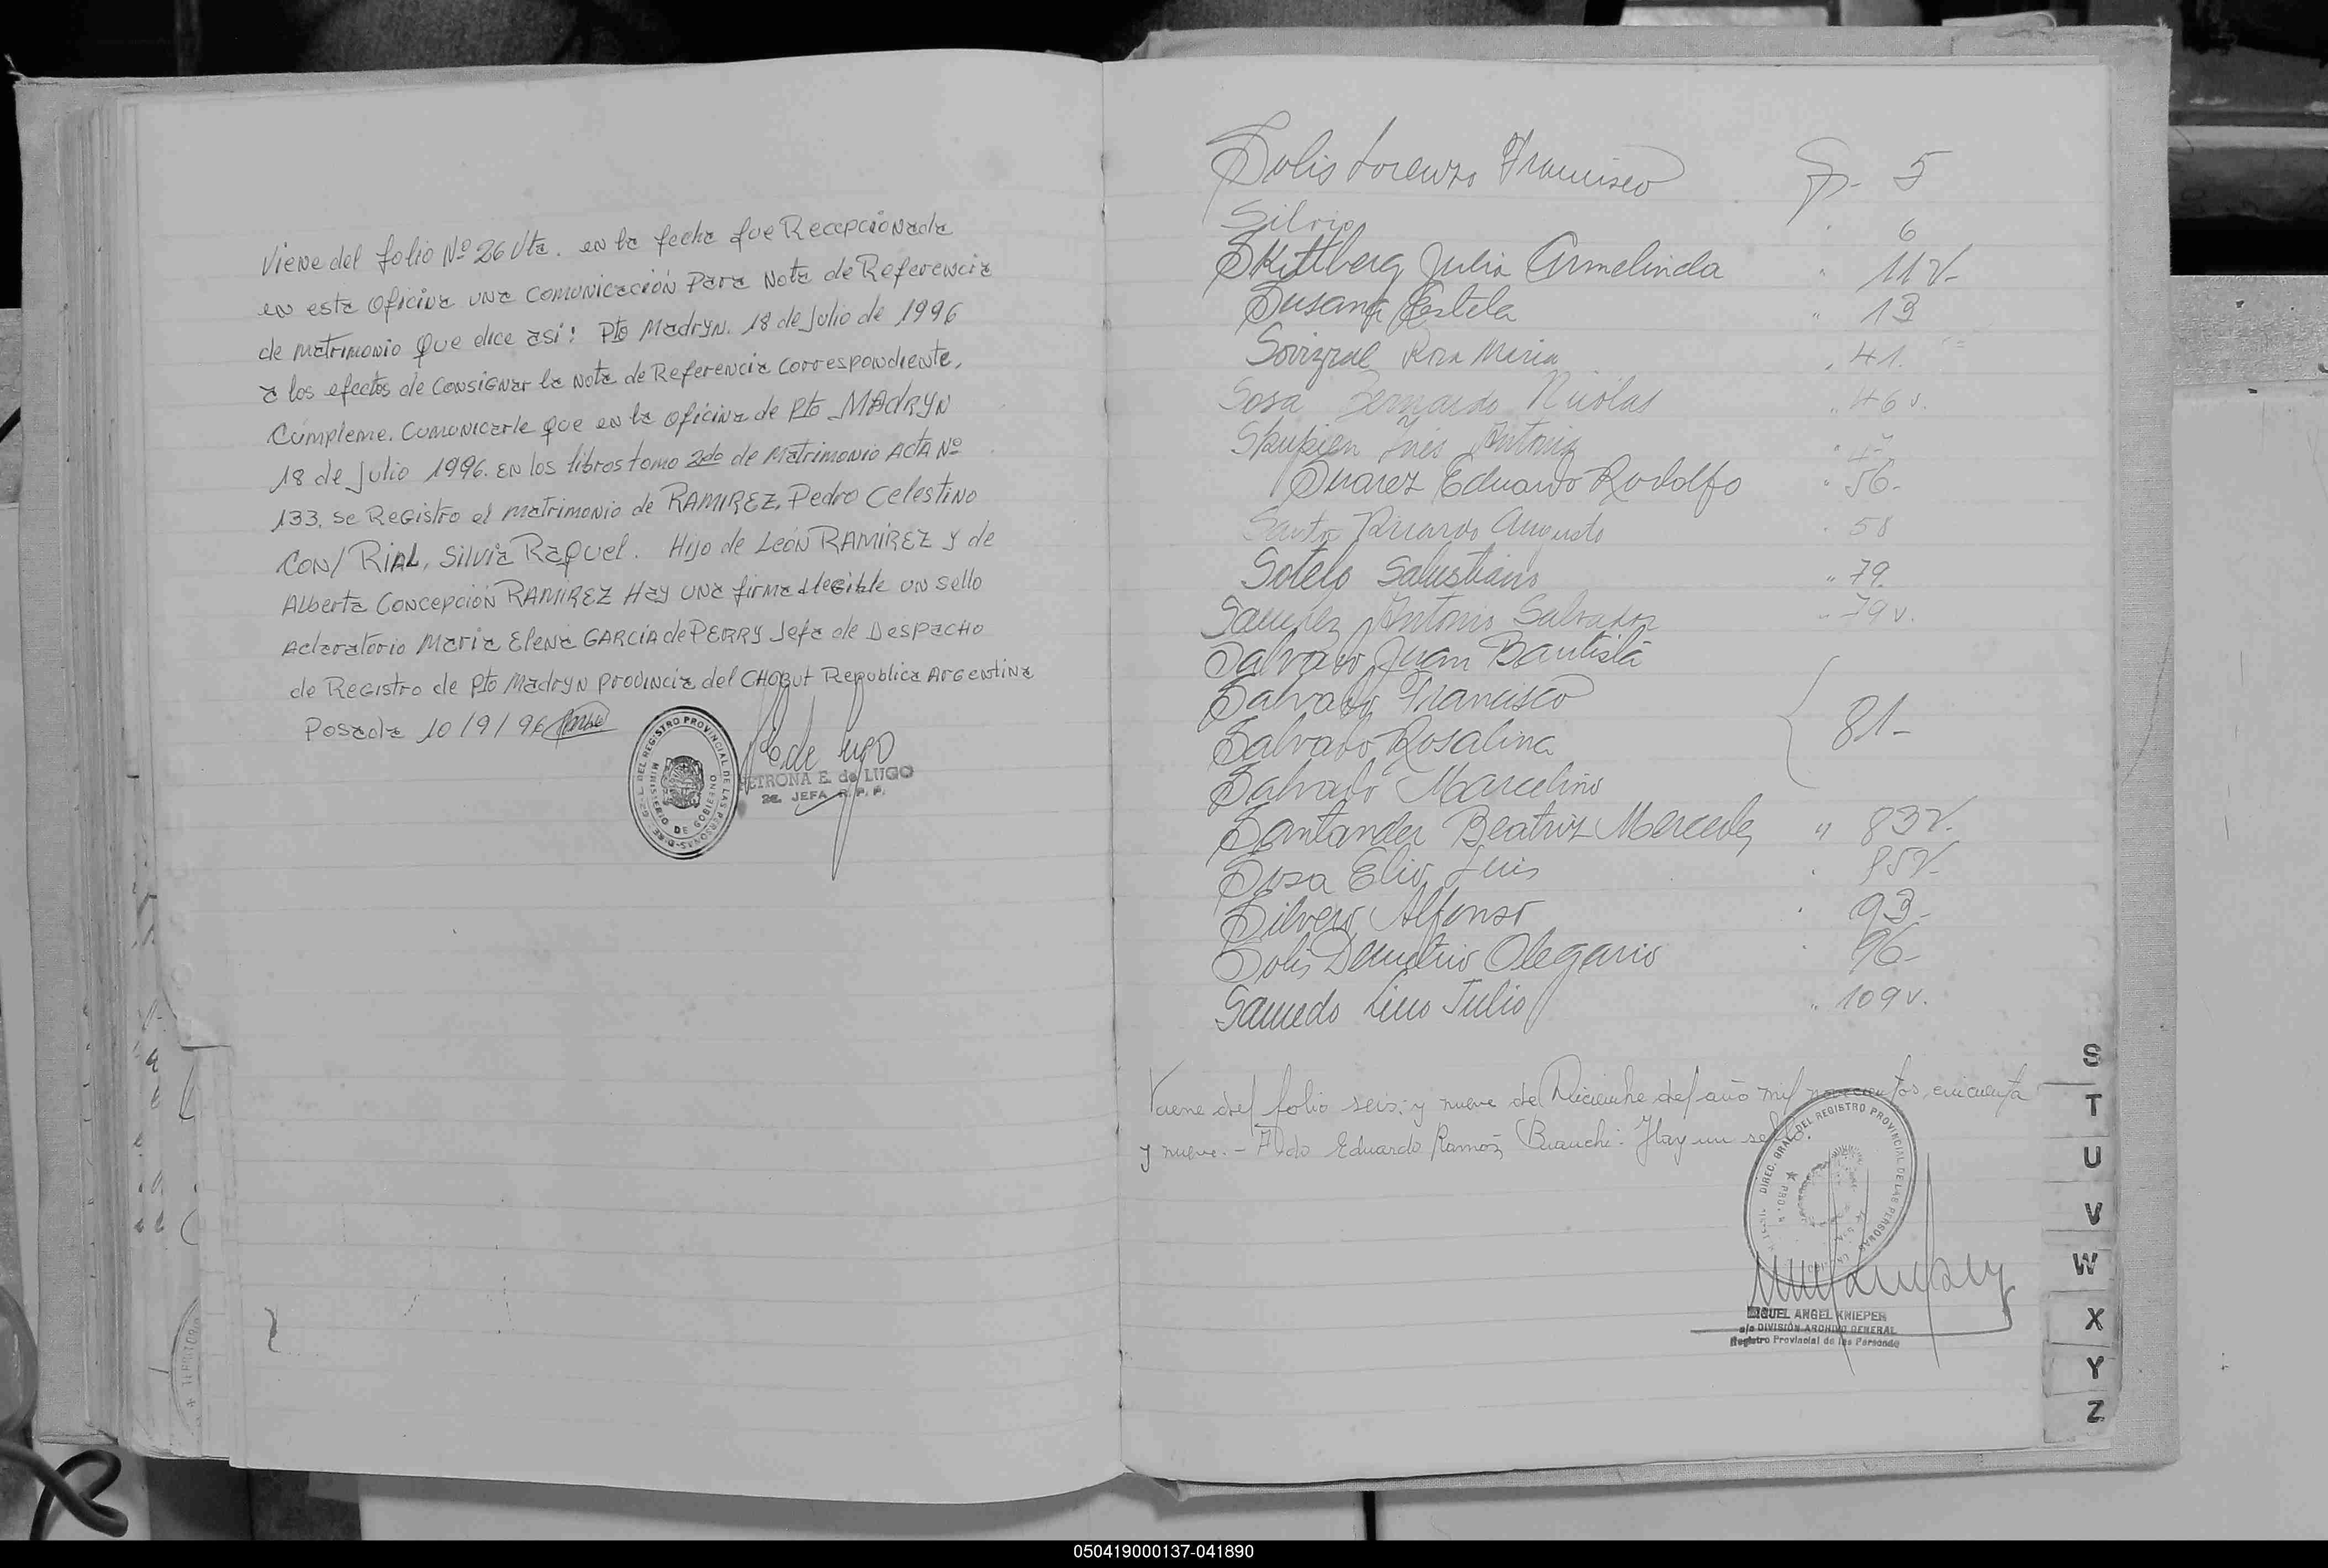 Viene del folio Nº 26 Vta. en la fecha fue Recepcionada
en esta oficina una comunicación para Nota de Referencia
de matrimonio que dice así: Pto Madryn. 18 de Julio de 1996
a los efectos de consignar la Nota de Referencia correspondiente,
Cúmpleme. Comunicarle que en la oficina de Pto MADRYN
18 de Julio 1996. en los libros tomo 2do de Matrimonio ACTA Nº
133. se Registro el matrimonio de RAMIREZ, Pedro Celestino
CON/ RIAL, Silvia Raquel. Hijo de León RAMIREZ y de
Alberta Concepción RAMIREZ Hay una firma ilegible un sello
Aclaratorio Maria Elena GARCIA de PERRY Jefa de Despacho
de Registro de Pto Madryn provincia del CHUBUT Republica Argentina
Posada 10/9/96
DEL REGISTRO PROVINCIAL DE LAS PERSONAS
MINISTERIO DE GOBIERNO
de Lugo
PETRONA E. de LUGO
2a. JEFA R. P. P.
Solis Lorenzo Francisco 5
Silvio 6
Skittberg Julia Armelinda " 11 v-
Susana Estela " 13
Rosa Maria " 41.
Sosa Bernardo Nicolas " 46 v.
Inés Antonia
Suarez Eduardo Rodolfo " 56-
Ricardo Augusto " 58
Sotelo Salustiano " 79.
Antonio Salvador " 79 v.
Salvado Juan Bautista
Salvado Francisco
Salvado Rosalina 81-
Salvado Marcelino
Santander Beatriz Mercedes " 83 v.
Sosa Elio Luis
Silvero Alfonso 93-
Solis Demetrio Olegario 96-
Julio " 109 v.
Viene del folio seis: y nueve de Diciembre del año mil novecientos cincuenta
y nueve.- Fdo Eduardo Ramón Bianchi. Hay un sello.
DIREC. GRAL. DEL REGISTRO PROVINCIAL DE LAS PERSONAS
MIGUEL ANGEL KNIEPER
a/c DIVISIÓN ARCHIVO GENERAL
Registro Provincial de las Personas
S
T
U
V
W
X
Y
Z
050419000137-041890